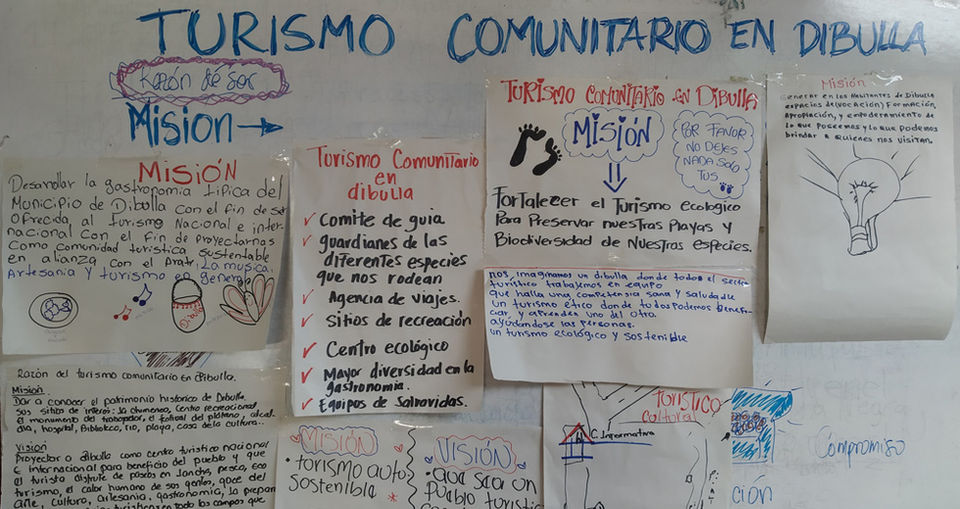 TURISMO COMUNITARIO EN DIBULLA
Razón de Ser
Mision
MISIÓN
Desarrollar la gastronomia tipica del
Municipio de Dibulla con el fin de ser
ofrecida al turismo Nacional e inter-
nacional con el fin de proyectarnas
como comunidad turistica sustentable
en alianza con el La musica,
Artesania y turismo en general
Turismo Comunitario
en
dibulla
comite de guia
guardianes de las
diferentes especies
que nos rodean
Agencia de viajes.
Sitios de recreación
Centro ecológico
Mayor diversidad en la
gastronomia.
Equipos de Salvavidas.
TURISMO COMUNITARIO en DIBULLA
MISIÓN
POR FAVOR
NO DEJES
NADA SOLO
TUS
Fortalecer el Turismo ecologico
Para Preservar nuestras Playas y
Biodiversidad de Nuestras especies.
nos, imaginamos un dibulla donde todos el
turistico trabajemos en equipo
que halla una competencia sana y saludable
un turismo etico donde todos podemos benefi-
ciar y aprender uno del otro.
ayudandose las personas.
un turismo ecológico y sostenible
Misión
Generar en los Habitantes de Dibulla
espacios de (VOCACIÓN) Formación,
Apropiación, y empoderamiento de
lo que Poseemos y lo que Podemos
brindar a Quienes nos visitan.
Razón del turismo comunitario en dibulla.
Mision
Dar a conocer el patrimonio historico de Dibulla,
sus sitios de interes: la chimenea, centro recreacional
el monumento del trabajador, el festival del platano, alcal-
dia, hospital, Biblioteca, rio, playa, casa de la cultura..
Vision
Proyectar a dibulla como centro turistico nacional
e internacional para beneficio del pueblo y que
el turista disfrute de paseos en lancha, pesca, eco
turismo, el calor humano de sus gentes, goce del
arte, cultura, artesania, gastronomia, la prepara
en todo los campos que
MISIÓN
• torismo auto
sostenible
VISIÓN
• que sea un
Pueblo turistic
TURÍSTICO
Cultural
C. Informativa
ción
Compromiso